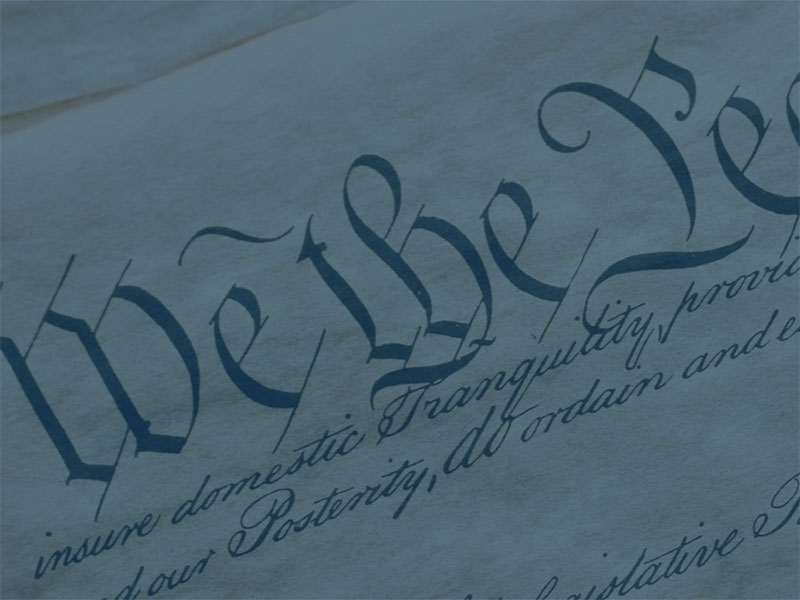 We the Pe
insure domestic Tranquility, provid
d our Posterity, do ordain and e
Legislative